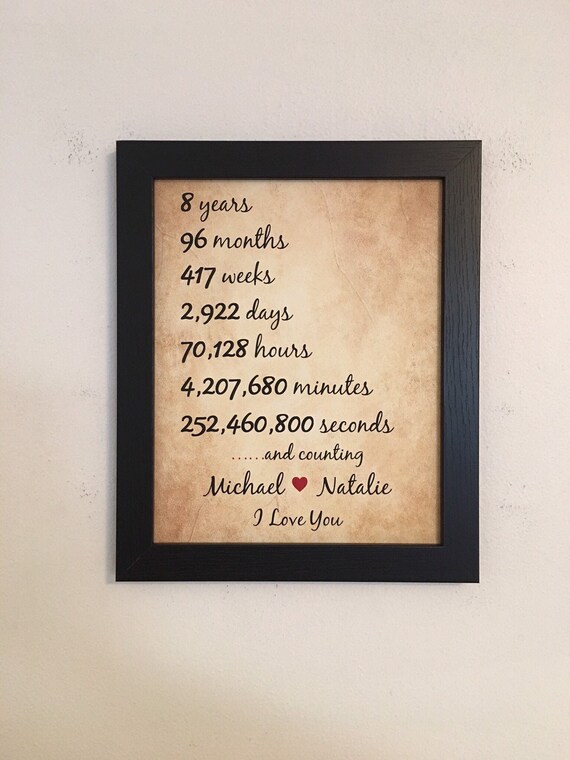 8 years
96 months
417 weeks
2,922 days
70,128 hours
4,207,680 minutes
252,460,800 seconds
......and counting
Michael ♥ Natalie
I Love You